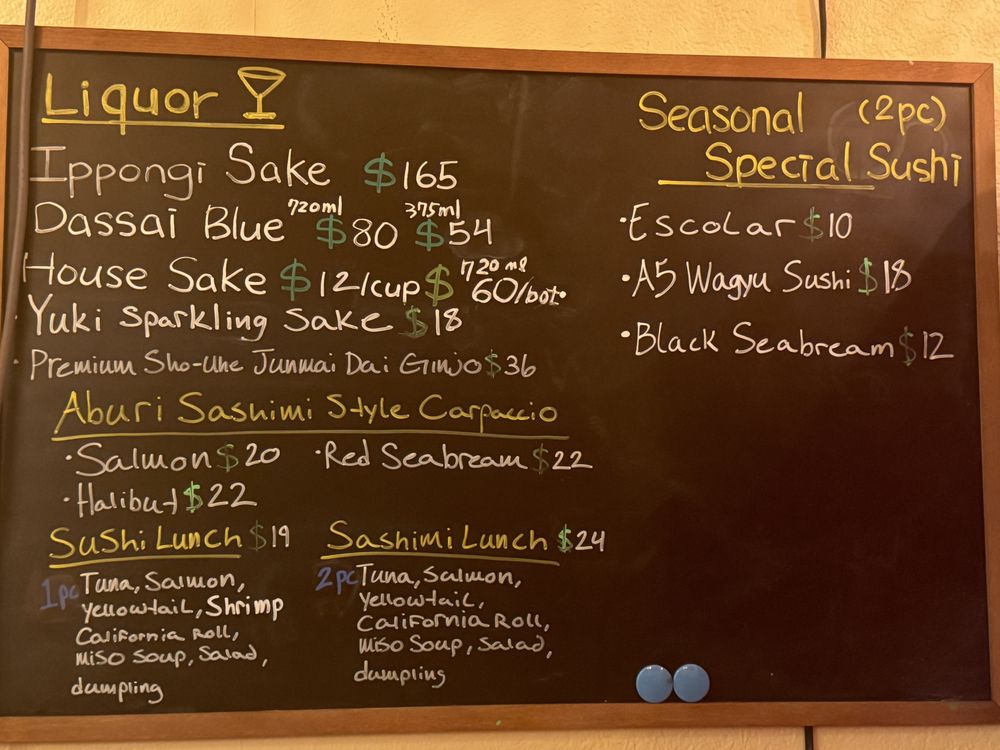 Liquor
Ippongi Sake $165
Dassai Blue 720ml $80 375ml $54
House Sake $12/cup $ 720ml 60/bot.
Yuki Sparkling Sake $18
· Premium Sho-Une Junmai Dai Ginjo $36
Aburi Sashimi Style Carpaccio
·Salmon $20 ·Red Seabream $22
·Halibut $22
Sushi Lunch $19
1pc Tuna, Salmon,
Yellowtail, Shrimp
California Roll,
Miso Soup, Salad,
dumpling
Sashimi Lunch $24
2pc Tuna, Salmon,
Yellowtail,
California Roll,
Miso Soup, Salad,
dumpling
Seasonal (2pc)
Special Sushi
·Escolar $10
·A5 Wagyu Sushi $18
·Black Seabream $12